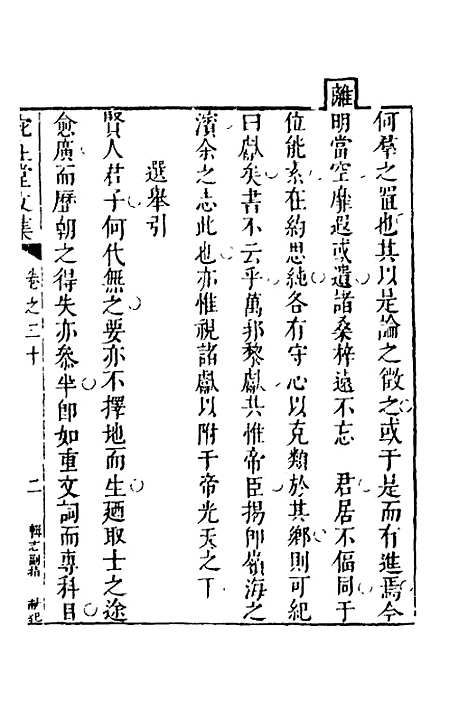 何羣之置也其以是論之徵之或于是而有進焉今
離
明當空靡遐或遺諸桑梓遠不忘　君居不偪同于
位能素在約思純各有守心以克類於其鄉則可紀
曰獻矣書不云乎萬邦黎獻共惟帝臣揚卽嶺海之
濱余之志此也亦惟視諸獻以附于帝光天之下
選舉引
賢人君子何代無之要亦不擇地而生廼取士之途
愈廣而歷朝之得失亦叅半卽如重文詞而專科目
堂文集
卷之二十
二
輯志副稿